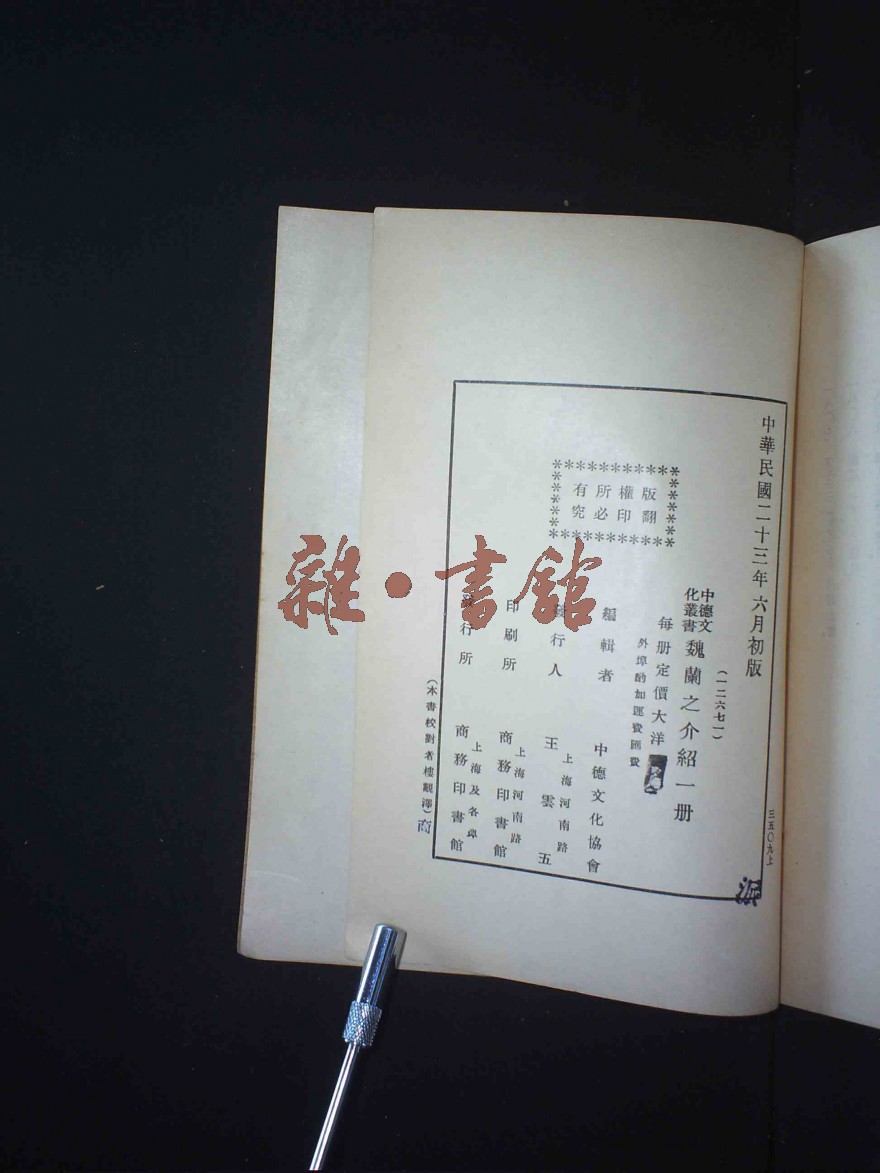 中華民國二十三年六月初版
三五〇九上
(一二六七一)
中德文化叢書 魏蘭之介紹一册
每册定價大洋
外埠酌加運費匯費
版權所有
翻印必究
編輯者 中德文化協會
發行人 王雲五
上海河南路
印刷所 商務印書館
上海河南路
發行所 商務印書館
上海及各埠
(本書校對者樓觀澤)
商
雜·書館